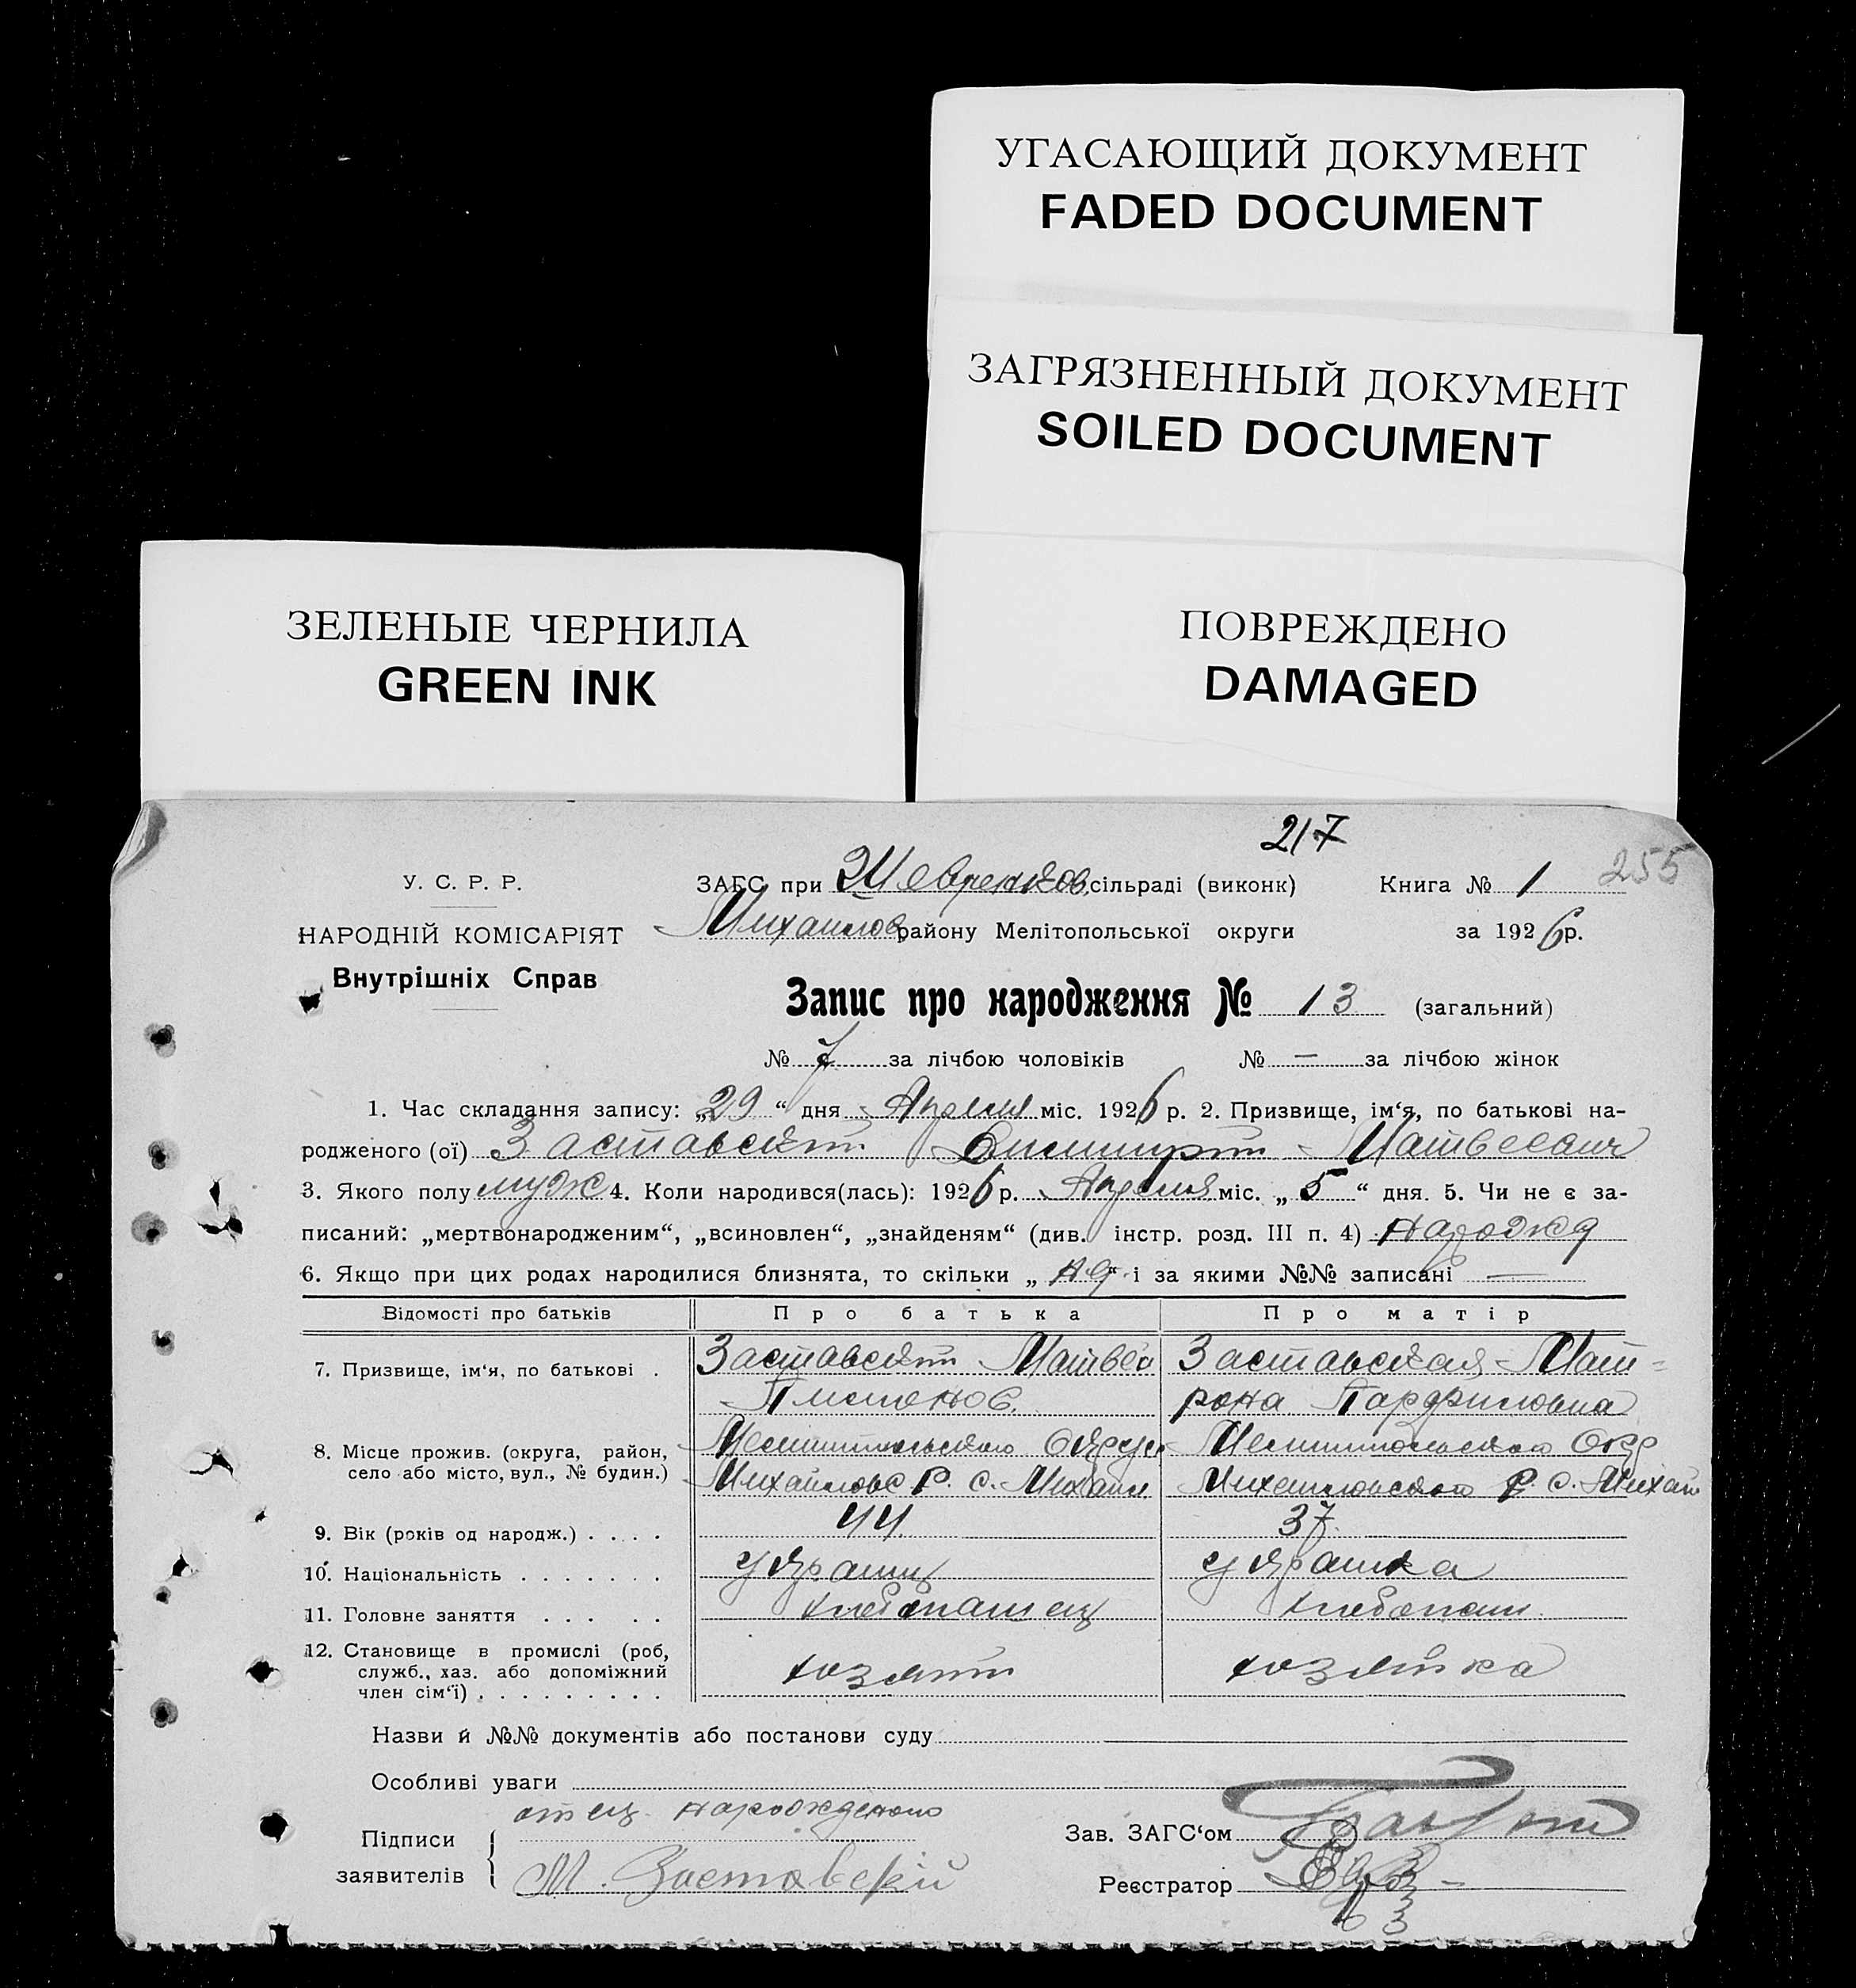 УГАСАЮЩИЙ ДОКУМЕНТ
FADED DOCUMENT
ЗАГРЯЗНЕННЫЙ ДОКУМЕНТ
SOILED DOCUMENT
ЗЕЛЕНЫЕ ЧЕРНИЛА
GREEN INK
ПОВРЕЖДЕНО
DAMAGED
217
255
У. С. Р. Р.
НАРОДНІЙ КОМІСАРІЯТ
Внутрішніх Справ
ЗАГС при сільраді (виконк) Книга № 1
Михайлов району Мелітопольської округи за 1926 р.
Запис про народження № 13 (загальний)
№ 7 за лічбою чоловіків № — за лічбою жінок
1. Час складання запису: „29“ дня Апреля міс. 1926 р. 2. Призвище, ім‘я, по батькові на-
родженого (ої) Заставский Димитрий Матвеевич
3. Якого полу муж 4. Коли народився(лась): 1926 р. Апреля міс. „5“ дня. 5. Чи не є за-
писаний: „мертвонародженим“, „всиновлен“, „знайденям“ (див. інстр. розд. III п. 4)
6. Якщо при цих родах народилися близнята, то скільки „ “ і за якими №№ записані —
Відомості про батьків Про батька Про матір
7. Призвище, ім‘я, по батькові . Заставский Матвей Заставская Мат-
рона Парфиловна
8. Місце прожив. (округа, район, Мелитопольского Округ Мелитопольского Окр
село або місто, вул., № будин.) Михайловс Р. с. Михайл. Михайловского Р. с. Михай
9. Вік (років од народж.) . . . . 44 37
10. Національність . . . . . . . украинц украинка
11. Головне заняття . . . . . хлебопашец хлебопаш.
12. Становище в промислі (роб, хозяин хозяйка
служб., хаз. або допоміжний
член сім‘ї) . . . . . . . . .
Назви й №№ документів або постанови суду
Особливі уваги
отец народженого
Підписи
заявителів М. Заставскій
Зав. ЗАГС‘ом
Реєстратор